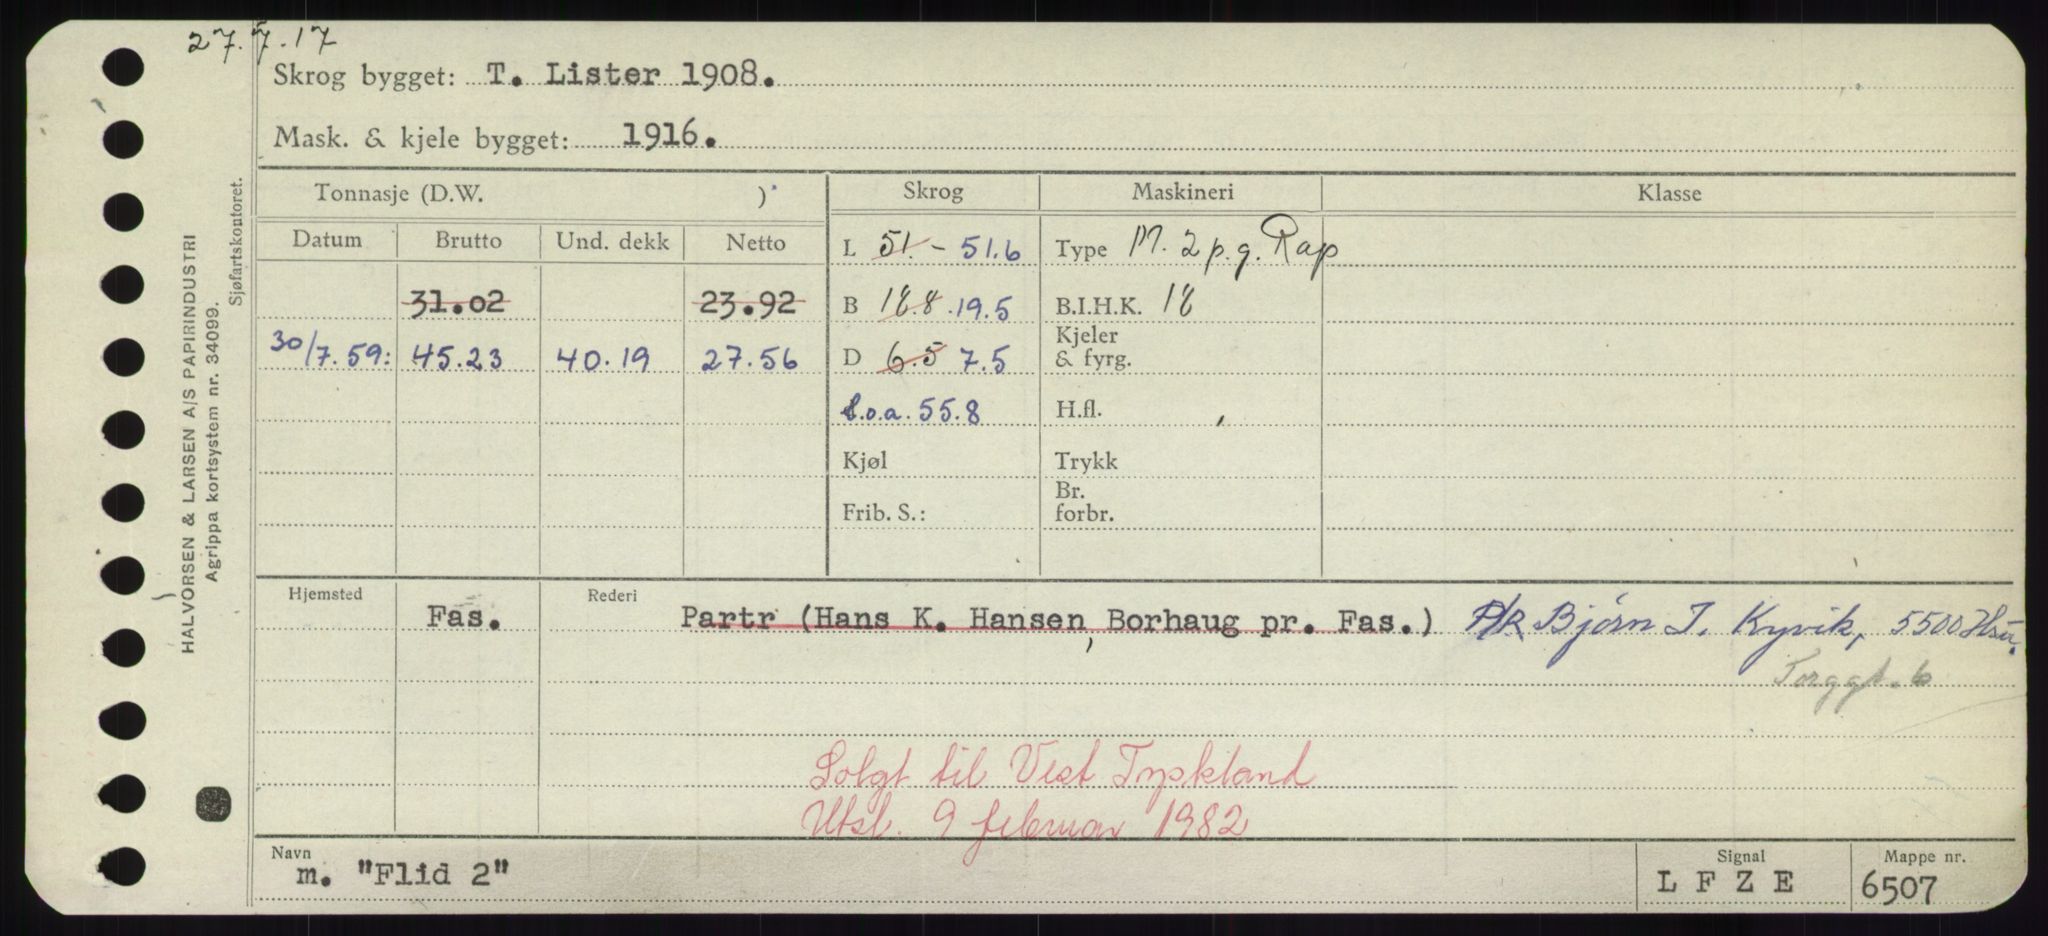 27.7.17
Skrog bygget: T. Lister 1908.
Mask. & kjele bygget: 1916.
HALVORSEN & LARSEN A/S PAPIRINDUSTRI
Agrippa kortsystem nr. 34099.
Sjøfartskontoret.
Tonnasje (D.W. ) Skrog Maskineri Klasse
Datum Brutto Und. dekk Netto
L 51.- 51.6 Type M. 2 p.g. Rap
31.02 23.92 B 18.8 19.5 B.I.H.K. 18
30/7.59: 45.23 40.19 27.56 D 6.5 7.5 Kjeler
& fyrg.
l.o.a. 55.8 H.fl.
Kjøl Trykk
Frib. S.: Br.
forbr.
Hjemsted Rederi
Fas. Partr (Hans K. Hansen, Borhaug pr. Fas.) P/R Bjørn J. Kyvik, 5500
Torggt. 6
Solgt til Vest Tyskland
Utsl. 9 februar 1982
Navn Signal Mappe nr.
m. "Flid 2" L F Z E 6507